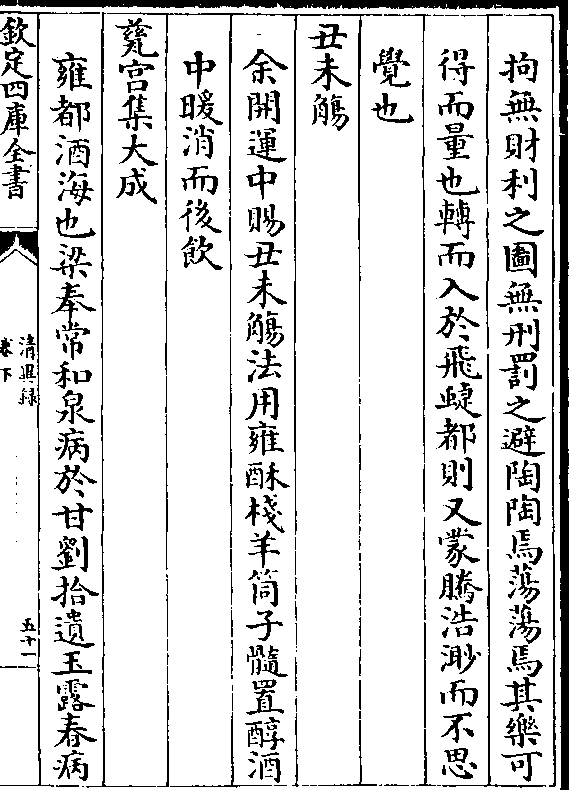 拘無財利之圖無刑罰之避陶陶焉蕩蕩焉其樂可
得而量也轉而入於飛蜨都則又蒙騰浩渺而不思
覺也
丑未觴
余開運中賜丑未觴法用雍酥棧羊筒子髓置醇酒
中暖消而後飲
甕宫集大成
雍都酒海也梁奉常和泉病於甘劉拾遺玉露春病
欽定四庫全書
清異録
卷下
五十一